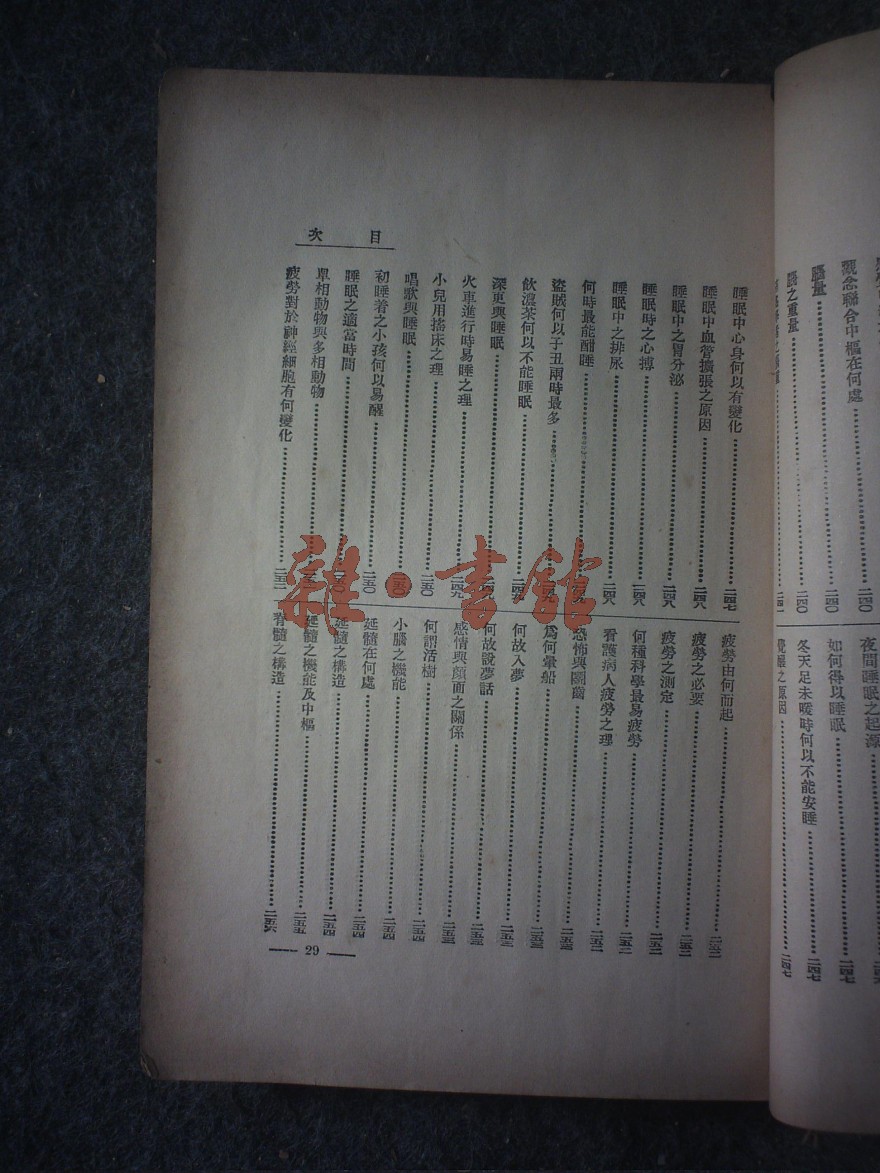 觀念聯合中樞在何處……二四〇
腦量……二四〇
腦之重量……二四〇
夜間睡眠之起源
如何得以睡眠……二四七
冬天足未暖時何以不能安睡……二四七
覺醒之原因……二四七
目次
睡眠中心身何以有變化……二四七
睡眠中血管擴張之原因……二四八
睡眠中之胃分泌……二四八
睡眠時之心搏……二四八
睡眠中之排尿……二四八
何時最能酣睡……
盜賊何以子丑兩時最多……
飲濃茶何以不能睡眠……二四九
深更與睡眠……二四九
火車進行時易睡之理……二四九
小兒用搖床之理……二五〇
唱歌與睡眠……二五〇
初睡着之小孩何以易醒……二五〇
睡眠之適當時間……
單相動物與多相動物……
疲勞對於神經細胞有何變化……二五一
疲勞由何而起……二五二
疲勞之必要……二五二
疲勞之測定……二五二
何種科學最易疲勞……二五二
看護病人疲勞之理……二五二
恐怖與……二五三
爲何暈船……二五三
何故入夢……二五三
何故說夢話……二五三
感情與顏面之關係……二五三
何謂活樹……二五四
小腦之機能……二五四
延髓在何處……二五四
延髓之構造……二五四
延髓之機能及中樞……二五五
脊髓之構造……二五六
29
雜·書館